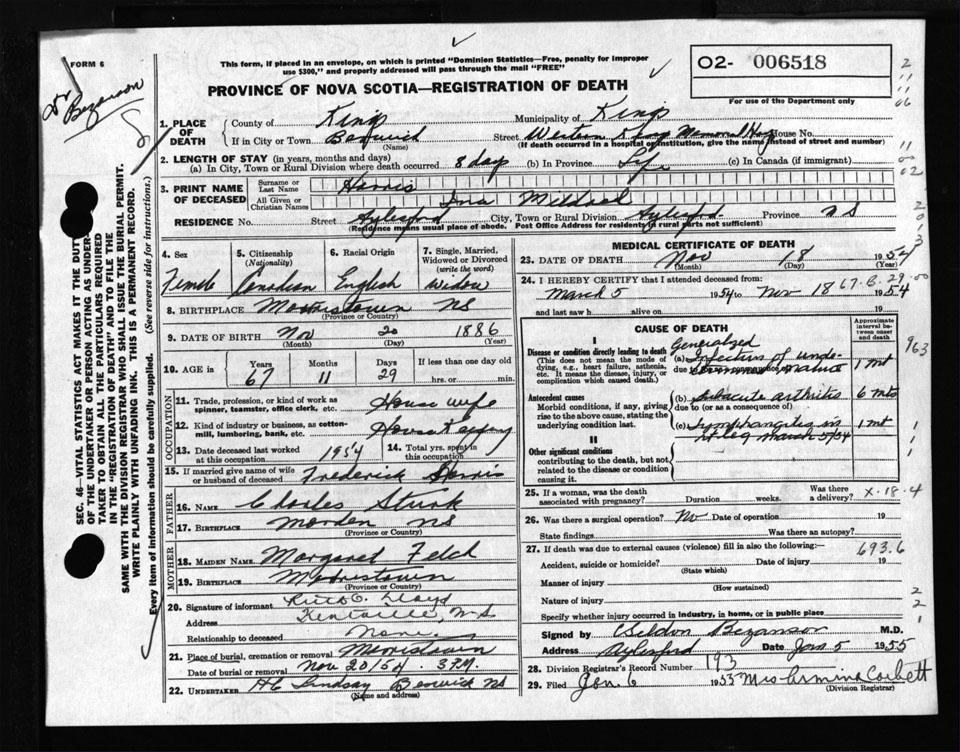 FORM 6
Dr Bezanson
This form, if placed in an envelope, on which is printed "Dominion Statistics—Free, penalty for improper
use $300," and properly addressed will pass through the mail "FREE"
O2- 006518
For use of the Department only
PROVINCE OF NOVA SCOTIA—REGISTRATION OF DEATH
1. PLACE OF DEATH
County of Kings Municipality of Kings
If in City or Town Berwick Street Western Kings Memorial Hosp House No.
(Name) (If death occurred in a hospital or institution, give the name instead of street and number)
2. LENGTH OF STAY (in years, months and days)
(a) In City, Town or Rural Division where death occurred 8 days (b) In Province Life (c) In Canada (if immigrant)
3. PRINT NAME OF DECEASED
Surname or Last Name Harris
All Given or Christian Names Ina Mildred
RESIDENCE No. Street Aylesford City, Town or Rural Division Aylesford Province NS
(Residence means usual place of abode. Post Office Address for residents in rural parts not sufficient)
4. Sex Female
5. Citizenship (Nationality) Canadian
6. Racial Origin English
7. Single, Married, Widowed or Divorced (write the word) Widow
8. BIRTHPLACE Morristown NS
(Province or Country)
9. DATE OF BIRTH Nov 20 1886
(Month) (Day) (Year)
10. AGE in Years 67 Months 11 Days 29 If less than one day old hrs. or min.
OCCUPATION
11. Trade, profession, or kind of work as spinner, teamster, office clerk, etc. House wife
12. Kind of industry or business, as cotton-mill, lumbering, bank, etc.
13. Date deceased last worked at this occupation 1954
14. Total yrs. spent in this occupation
15. If married give name of wife or husband of deceased Frederick Harris
FATHER
16. NAME Charles
17. BIRTHPLACE Morden NS
MOTHER
18. MAIDEN NAME Margaret Felch
19. BIRTHPLACE Morristown
(Province or Country)
20. Signature of informant Lloyd
Address Kentville, N.S
Relationship to deceased None
21. Place of burial, cremation or removal Morristown
Date of burial or removal Nov 20/54 3 P.M.
22. UNDERTAKER H C Lindsay Berwick NS
(Name and address)
MEDICAL CERTIFICATE OF DEATH
23. DATE OF DEATH Nov 18 1954
(Month) (Day) (Year)
24. I HEREBY CERTIFY that I attended deceased from:
March 5 1954 to Nov 18 1954
67. B. 29.00
and last saw h alive on 19
CAUSE OF DEATH
Approximate interval between onset and death
I
Disease or condition directly leading to death
(This does not mean the mode of dying, e.g., heart failure, asthenia, etc. It means the disease, injury, or complication which caused death.)
Generalized
(a) Infection of unde-
due to
1 mt
Antecedent causes
Morbid conditions, if any, giving rise to the above cause, stating the underlying condition last.
(b) Subacute arthritis 6 mts
due to (or as a consequence of)
(c) Lymphangitis in 1 mt
rt leg March 5/54
II
Other significant conditions
contributing to the death, but not related to the disease or condition causing it.
963
25. If a woman, was the death associated with pregnancy? Duration weeks. Was there a delivery?
X-18-4
26. Was there a surgical operation? No Date of operation 19
State findings Was there an autopsy?
27. If death was due to external causes (violence) fill in also the following:—
693.6
Accident, suicide or homicide? Date of injury 19
(State which)
Manner of injury
(How sustained)
Nature of injury
Specify whether injury occurred in industry, in home, or in public place
Signed by Bezanson M.D.
Address Aylesford Date Jan 5 1955
28. Division Registrar's Record Number 193
29. Filed Jan. 6 1955 Mrs Ermina Corbett
(Division Registrar)
SEC. 46—VITAL STATISTICS ACT MAKES IT THE DUTY
OF THE UNDERTAKER OR PERSON ACTING AS UNDER-
TAKER TO OBTAIN ALL THE PARTICULARS REQUIRED
IN THE "REGISTRATION OF DEATH" AND TO FILE THE
SAME WITH THE DIVISION REGISTRAR WHO SHALL ISSUE THE BURIAL PERMIT.
WRITE PLAINLY WITH UNFADING INK. THIS IS A PERMANENT RECORD.
Every item of information should be carefully supplied. (See reverse side for instructions.)